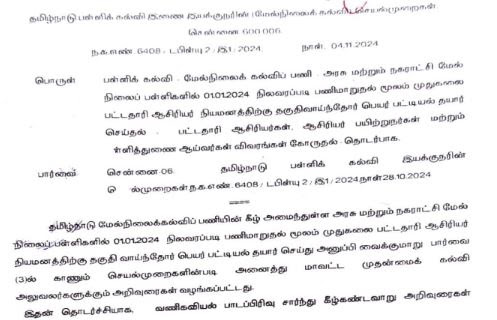 தமிழ்நாடு பள்ளிக் கல்வி இணை இயக்குநரின் (மேல்நிலைக் கல்வி) செயல்முறைகள்
சென்னை 600 006
ந.க.எண். 6408 / டபிள்யு 2 / இ1 / 2024 நாள். 04.11.2024
பொருள் பள்ளிக் கல்வி - மேல்நிலைக் கல்விப் பணி - அரசு மற்றும் நகராட்சி மேல்
நிலைப் பள்ளிகளில் 01.01.2024 நிலவரப்படி பணிமாறுதல் மூலம் முதுகலை
பட்டதாரி ஆசிரியர் நியமனத்திற்கு தகுதிவாய்ந்தோர் பெயர் பட்டியல் தயார்
செய்தல் - பட்டதாரி ஆசிரியர்கள், ஆசிரியர் பயிற்றுநர்கள் மற்றும்
ள்ளித்துணை ஆய்வர்கள் விவரங்கள் கோருதல் - தொடர்பாக.
பார்வை சென்னை-06 தமிழ்நாடு பள்ளிக் கல்வி இயக்குநரின்
செயல்முறைகள் ந.க.எண். 6408 / டபிள்யு 2 / இ1 / 2024, நாள் 28.10.2024
தமிழ்நாடு மேல்நிலைக்கல்விப் பணியின் கீழ் அமைந்துள்ள அரசு மற்றும் நகராட்சி மேல்
நிலைப் பள்ளிகளில் 01.01.2024 நிலவரப்படி பணிமாறுதல் மூலம் முதுகலை பட்டதாரி ஆசிரியர்
நியமனத்திற்கு தகுதிவாய்ந்தோர் பெயர் பட்டியல் தயார் செய்து அனுப்பி வைக்குமாறு பார்வை
(3)ல் காணும் செயல்முறைகளின்படி அனைத்து மாவட்ட முதன்மைக் கல்வி
அலுவலர்களுக்கும் அறிவுரைகள் வழங்கப்பட்டது.
இதன் தொடர்ச்சியாக, வணிகவியல் பாடப்பிரிவு சார்ந்து கீழ்கண்டவாறு அறிவுரைகள்